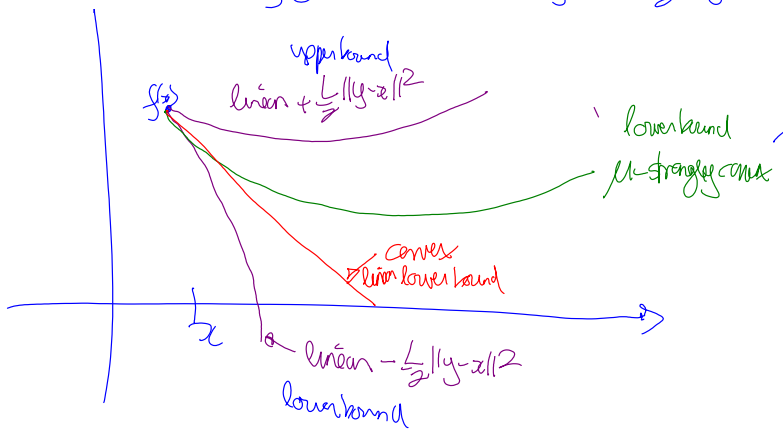 upperbound
linear + L/2 ||y-x||²
f(x)
lowerbound
μ-strongly convex
convex
linear lowerbound
x
linear - L/2 ||y-x||²
lowerbound